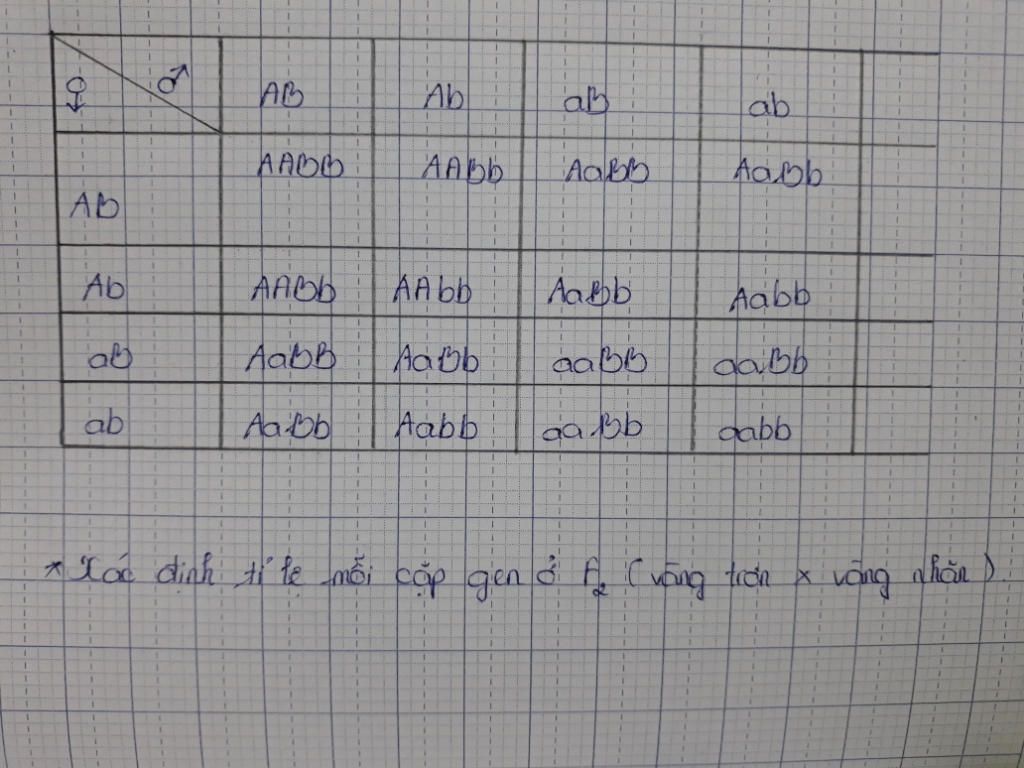 ♀ ♂ AB Ab aB ab
AB AABB AABb AaBB AaBb
Ab AABb AAbb AaBb Aabb
aB AaBB AaBb aaBB aaBb
ab AaBb Aabb aaBb aabb
* Xác định tỉ lệ mỗi cặp gen ở F2 (vàng trơn x vàng nhăn)